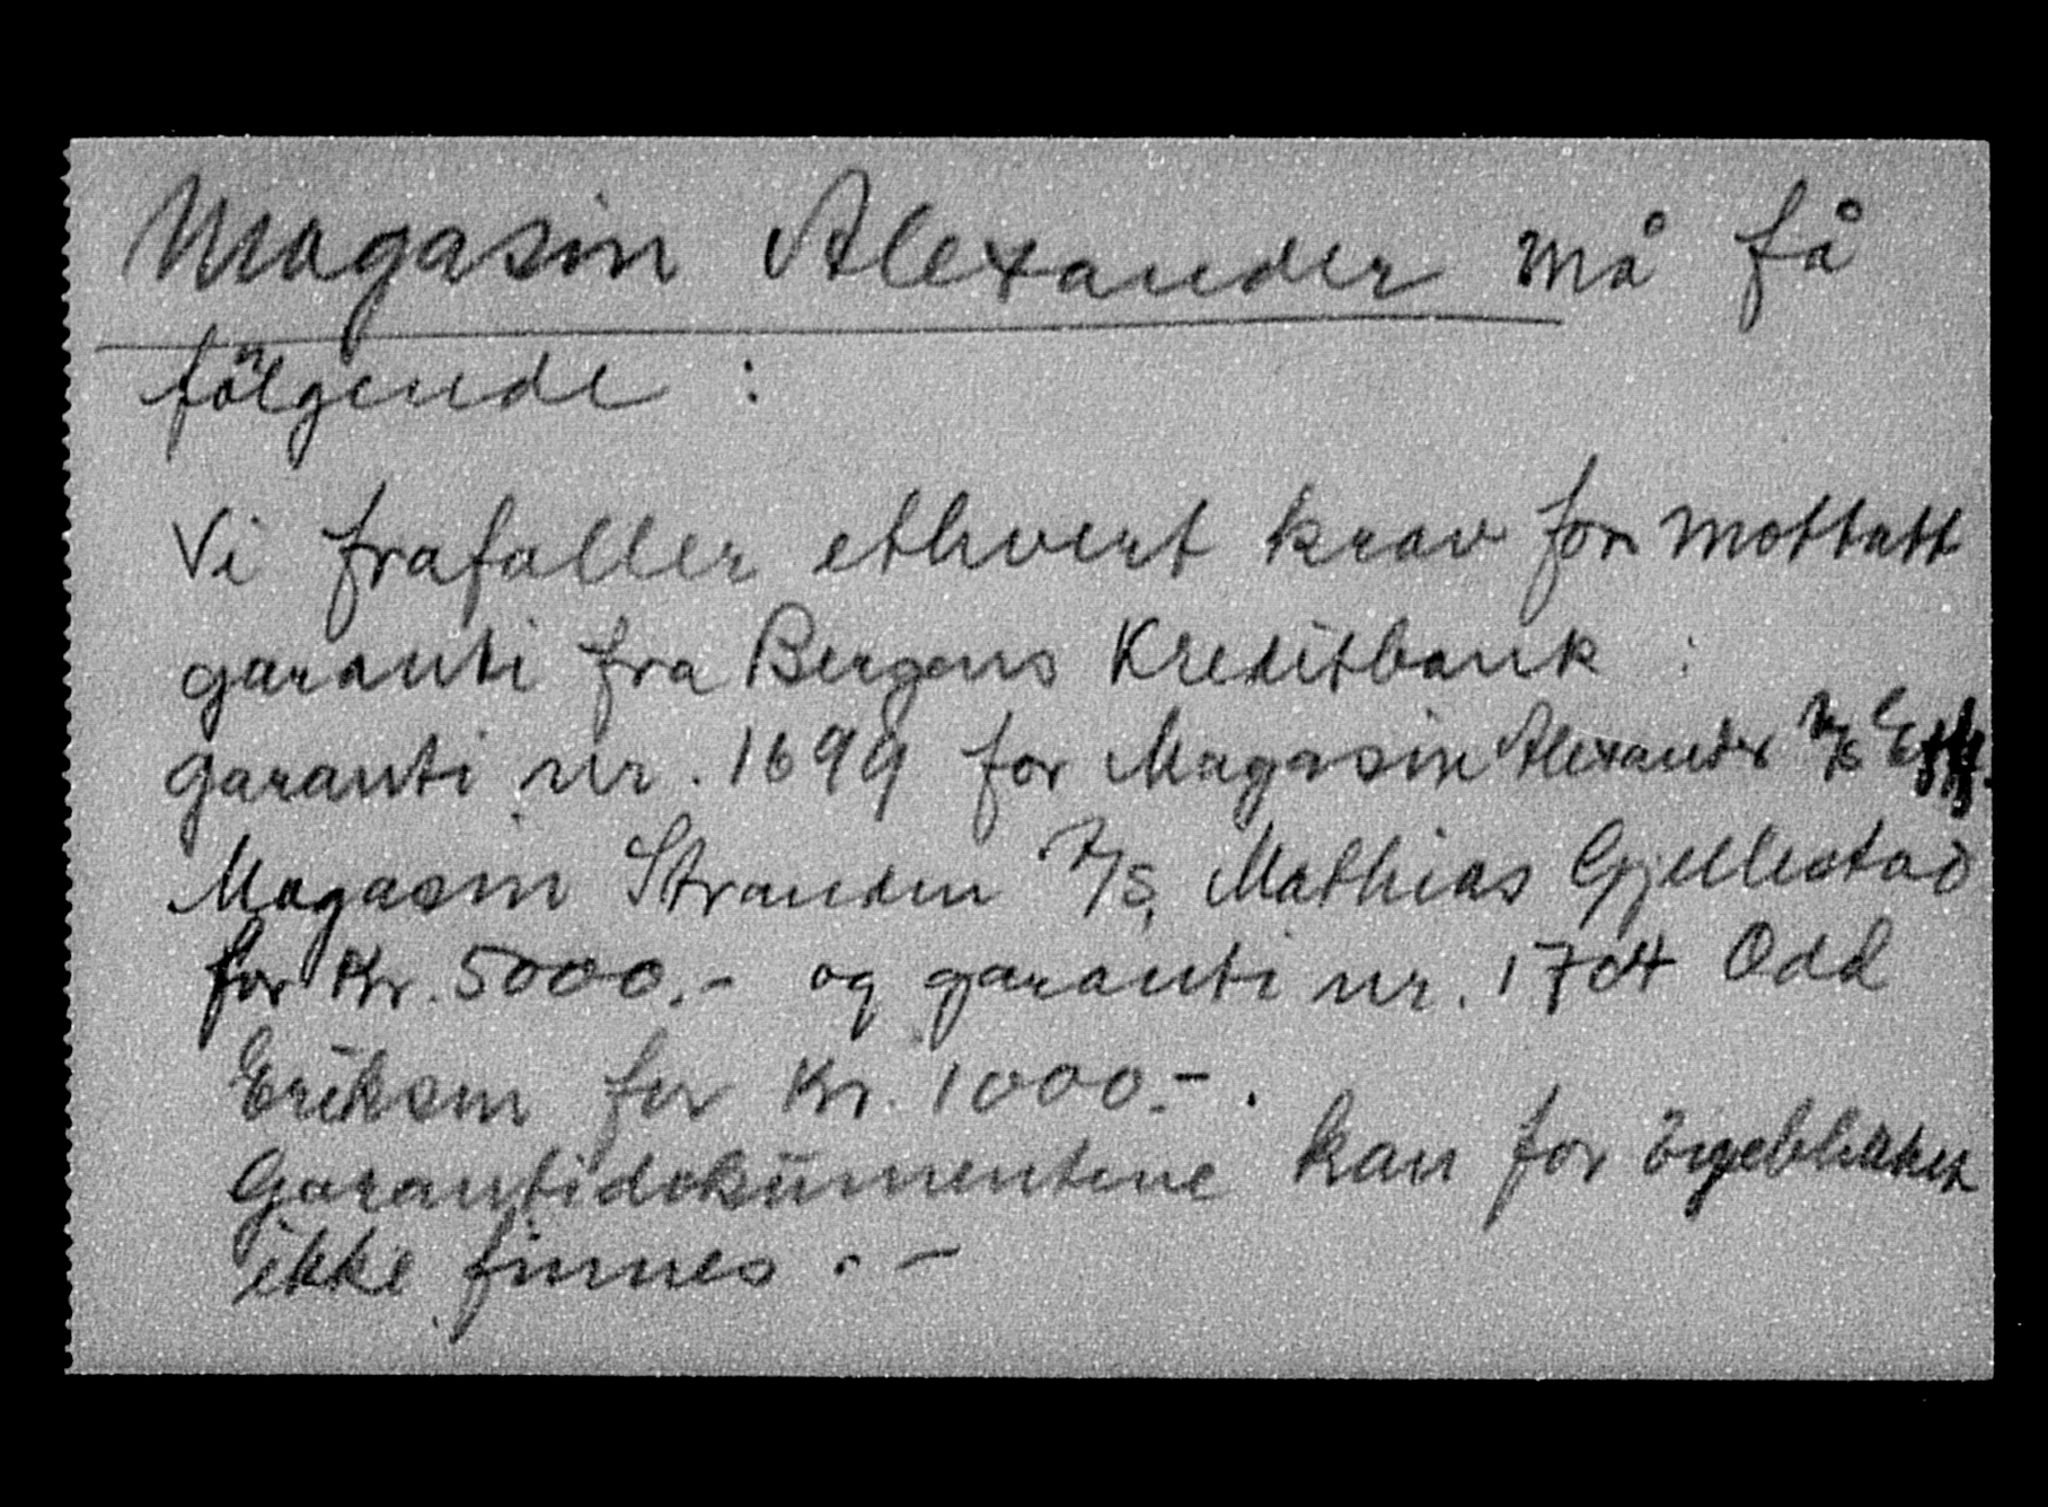 Magasin Alexander må få
følgende :
Vi frafaller ethvert krav for mottatt
garanti fra Bergens Kreditbank :
garanti nr. 1699 for Magasin Alexander A/S
Magasin Stranden A/S, Mathias Gjellestad
for Kr. 5000.- og garanti nr. Odd
Eriksen for Kr. 1000.- .
Garantidokumentene kan for öyeblikket
ikke finnes . -